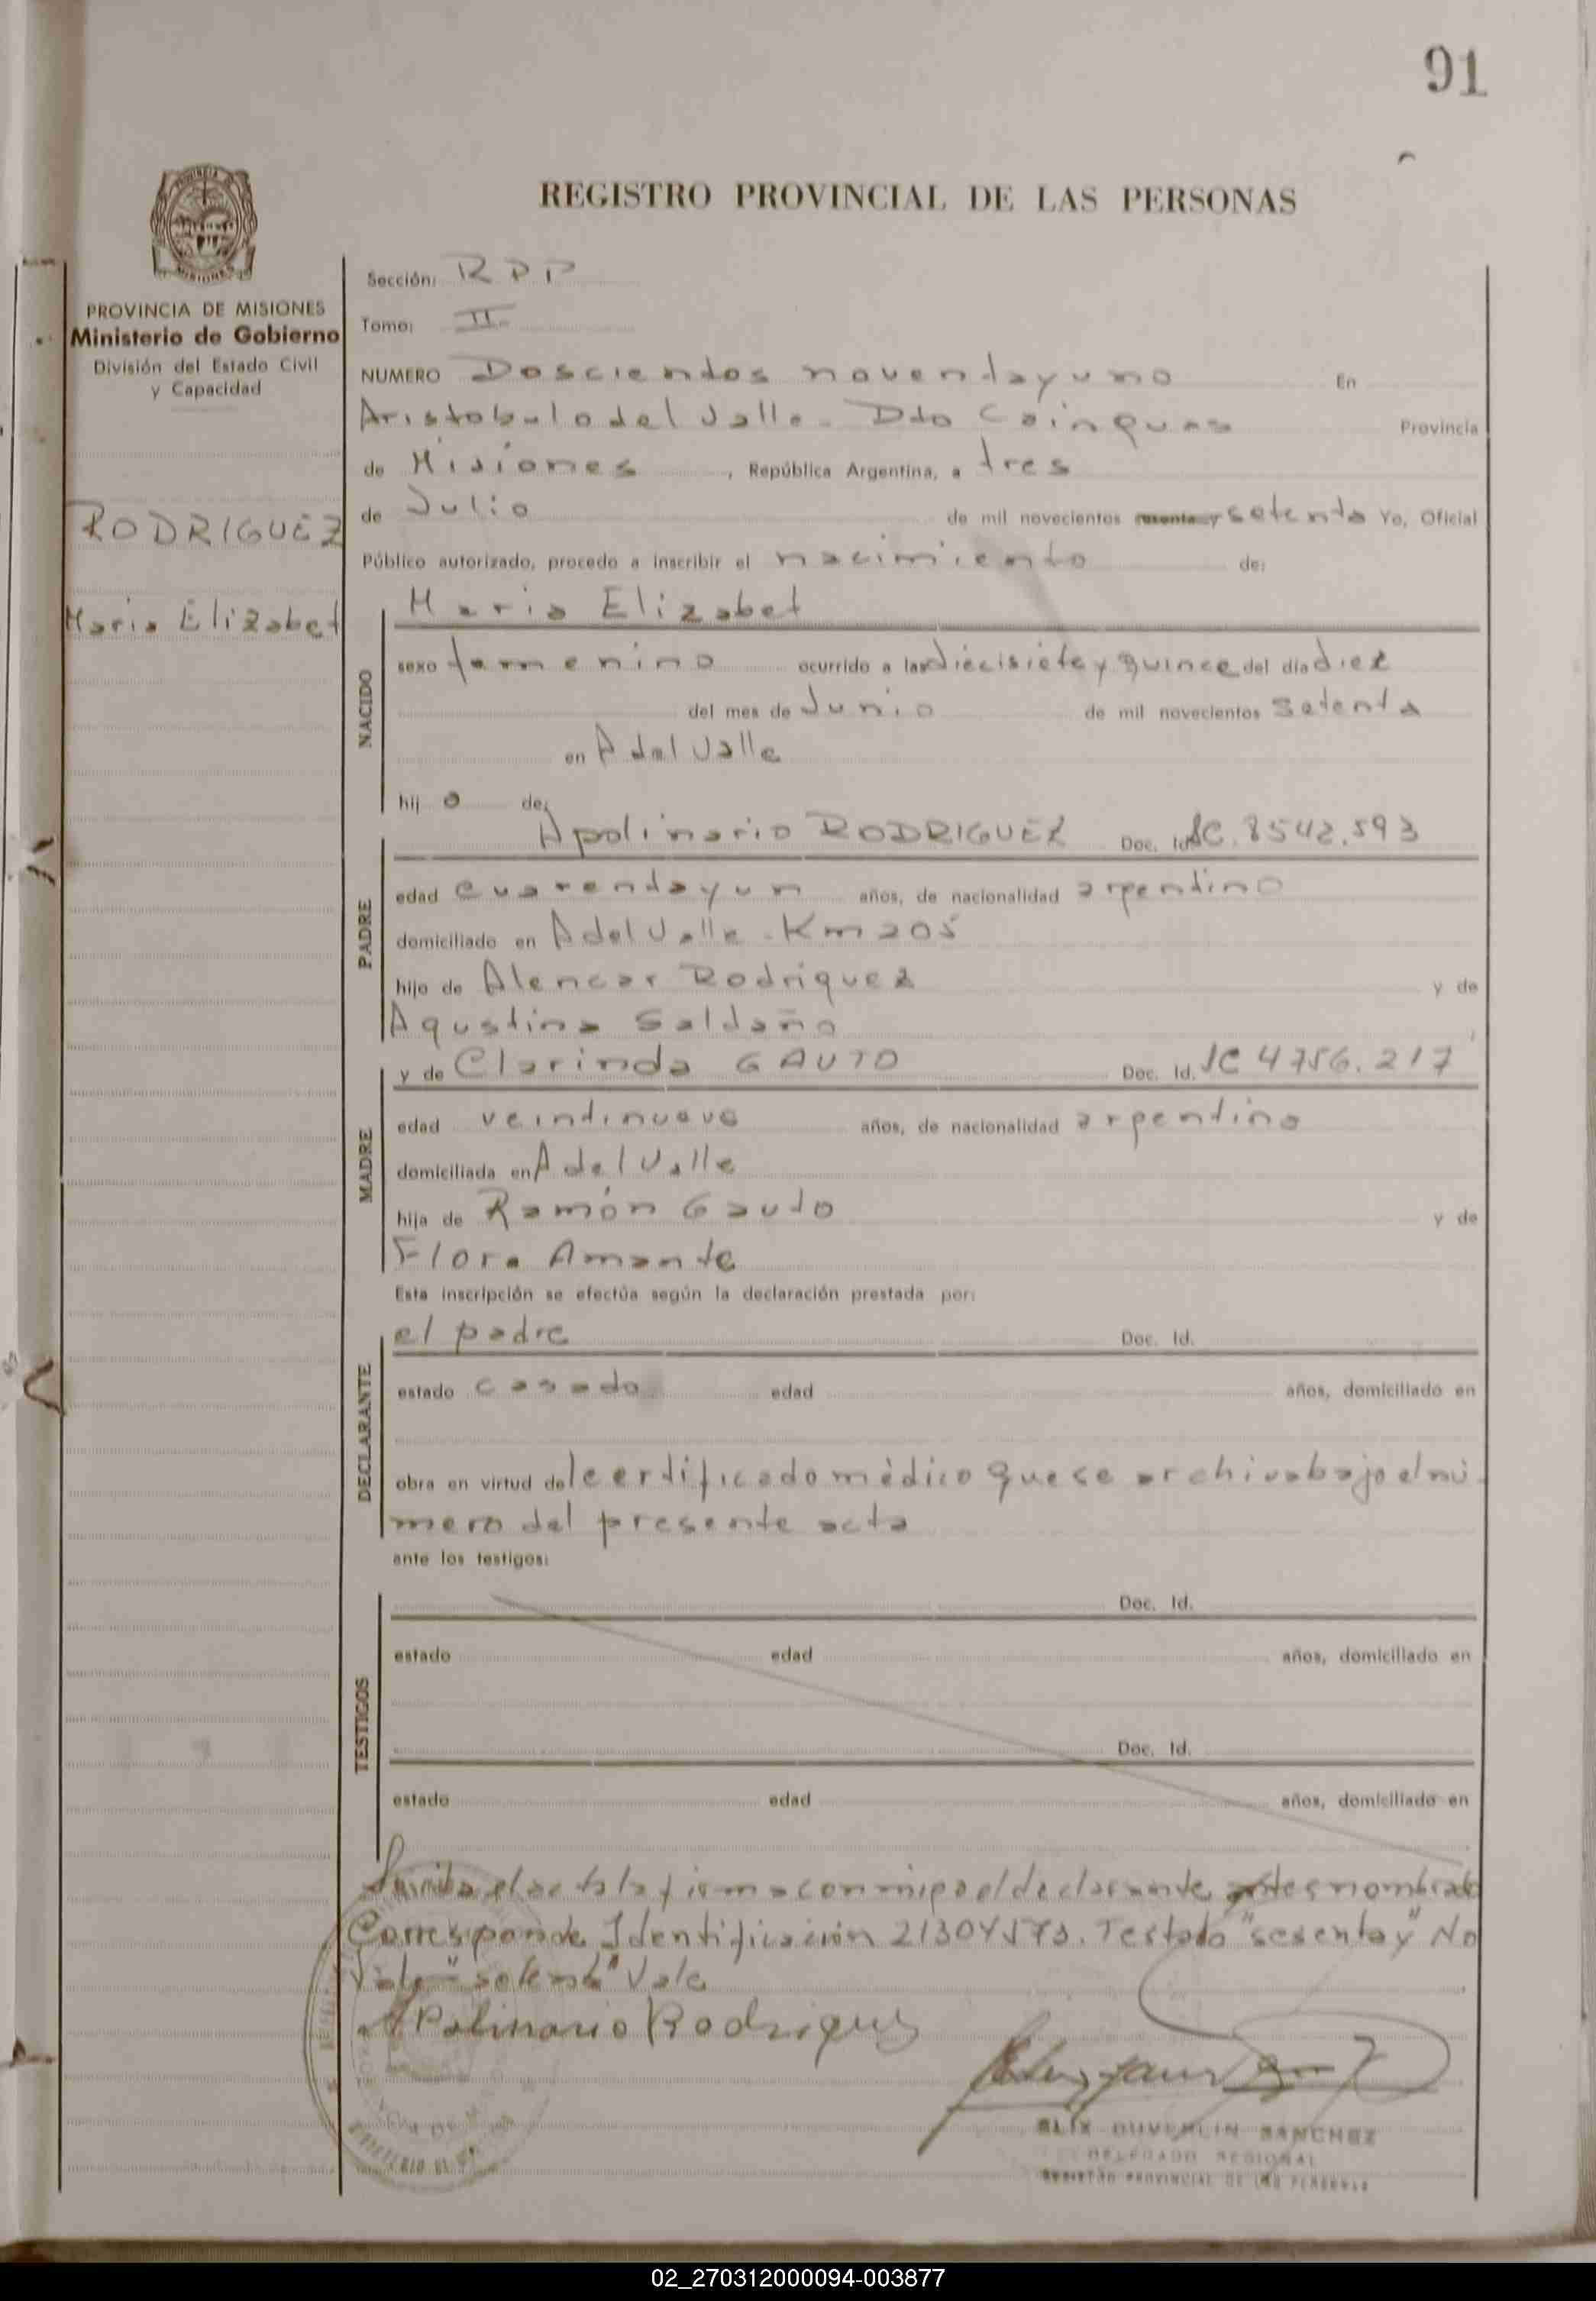 91
REGISTRO PROVINCIAL DE LAS PERSONAS
PROVINCIA DE MISIONES
Ministerio de Gobierno
División del Estado Civil
y Capacidad
RODRIGUEZ
Maria Elizabet
Sección: RPP
Tomo: II
NUMERO Doscientos noventa y uno En
Aristobulo del Valle - Dto Cainguas Provincia
de Misiones, República Argentina, a tres
de Julio de mil novecientos sesenta y setenta Yo, Oficial
Público autorizado, procedo a inscribir el nacimiento de:
Maria Elizabet
NACIDO
sexo femenino ocurrido a las diecisiete y quince del día diez
del mes de Junio de mil novecientos setenta
en A del Valle
hij o de:
Apolinario RODRIGUEZ Doc. Id. 8542.593
PADRE
edad cuarenta y un años, de nacionalidad argentino
domiciliado en A del Valle - Km 205
hijo de Alencar Rodriguez y de
Agustina Saldaña
y de Clarinda GAUTO Doc. Id. 4756.217
MADRE
edad veintinueve años, de nacionalidad argentina
domiciliada en A del Valle
hija de Ramón Gauto y de
Flora Amante
Esta inscripción se efectúa según la declaración prestada por:
el padre Doc. Id.
DECLARANTE
estado casado edad años, domiciliado en
obra en virtud del certificado médico que se archiva bajo el nú-
mero del presente acta
ante los testigos:
Doc. Id.
TESTIGOS
estado edad años, domiciliado en
Doc. Id.
estado edad años, domiciliado en
el acta la firma conmigo el declarante antes nombrado
Corresponde Identificación 21304573. Testado "sesenta y" No
Vale "setenta" Vale
Apolinario Rodriguez
DUVERLIN SANCHEZ
DELEGADO REGIONAL
REGISTRO PROVINCIAL DE LAS PERSONAS
02_270312000094-003877